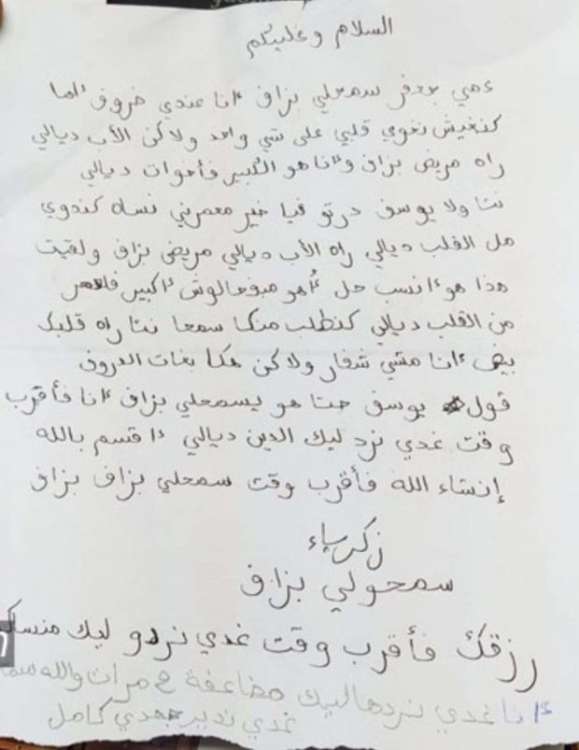 السلام وعليكم
عمي جعفر سمحلي بزاف أنا عندي ضروف أما
كنغيش نغوي قلبي على شي واحد ولاكن الأب ديالي
راه مريض بزاف وأنا هو الكبير فأخوات ديالي
نتا ولا يوسف درتو فيا خير معمرني نساه كندوي
من القلب ديالي راه الأب ديالي مريض بزاف ولقيت
هذا هو أنسب حل أهو مبغالوش أكبير
من القلب ديالي كنطلب منكا سمعا نتا راه قلبك
بيض أنا مشي شفار ولاكن هكا بغات الضروف
قول يوسف حتا هو يسمحلي بزاف أنا فأقرب
وقت غدي نرد ليك الدين ديالي أقسم بالله
إنشاء الله فأقرب وقت سمحلي بزاف بزاف
زكرياء
سمحولي بزاف
رزقك فأقرب وقت غدي نردو ليك
أنا غدي نردها ليك مضاعفة مرات والله
غدي ندير جهدي كامل